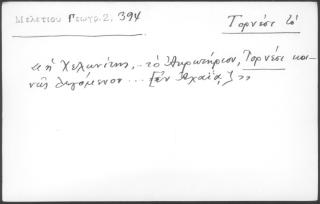 Μελετίου Γεωγρ. 2, 394
Τορνέσε τό
« ἡ Χελωνίτης, .. τὸ Ἀκρωτήριον, Τορνέσε κοι-
νῶς λεγόμενον ... [ἐν Ἀχαΐᾳ] »